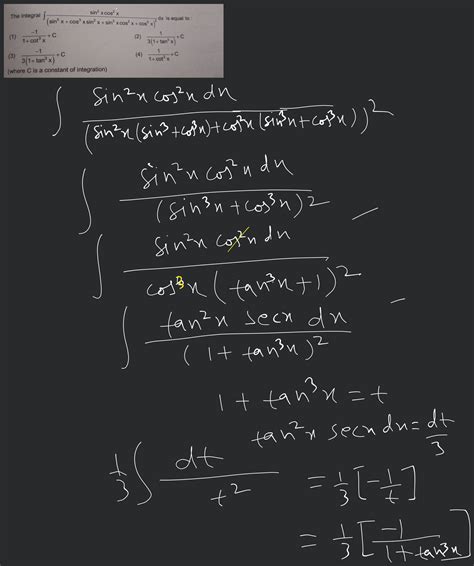 The integral ∫ sin²x cos²x / (sin⁵x + cos³x sin²x + sin³x cos²x + cos⁵x)² dx is equal to :
(1) -1/(1+cot³x) + C (2) 1/(3(1+tan³x)) + C
(3) -1/(3(1+tan³x)) + C (4) 1/(1+cot³x) + C
(where C is a constant of integration)
∫ sin²x cos²x dx / (sin²x (sin³ + cos³x) + cos²x (sin³x + cos³x))²
∫ sin²x cos²x dx / (sin³x + cos³x)²
∫ sin²x cos²x dx / cos³x (tan³x + 1)²
∫ tan²x secx dx / (1 + tan³x)²
1 + tan³x = t
tan²x secx dx = dt/3
1/3 ∫ dt/t² = 1/3 [-1/t]
= 1/3 [-1/(1 + tan³x)]